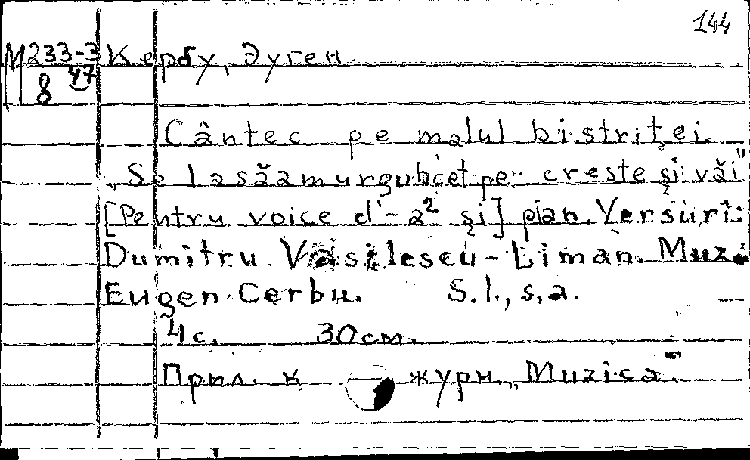 144
М233-3 Кербу, Эуген
47
8
Cântec pe malul bistriţei.
„Se lasă amurgu încet pe creste şi văi"
[Pentru voice d'-a² şi] pian. Versuri:
Dumitru Vasilescu-Liman. Muz.
Eugen Cerbu. S.l., s.a.
4 с. 30 см.
Прил. к журн. „Muzica".